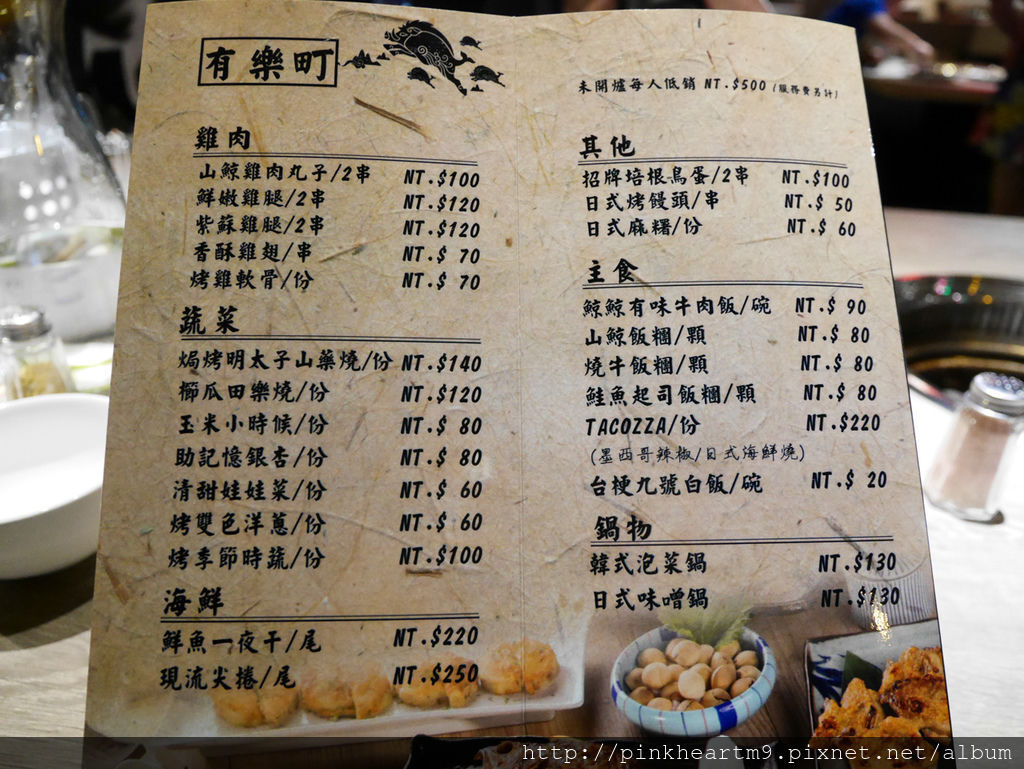 有樂町
雞肉
山鯨雞肉丸子/2串 NT.$100
鮮嫩雞腿/2串 NT.$120
紫蘇雞腿/2串 NT.$120
香酥雞翅/串 NT.$ 70
烤雞軟骨/份 NT.$ 70
蔬菜
焗烤明太子山藥燒/份 NT.$140
櫛瓜田樂燒/份 NT.$120
玉米小時候/份 NT.$ 80
助記憶銀杏/份 NT.$ 80
清甜娃娃菜/份 NT.$ 60
烤雙色洋蔥/份 NT.$ 60
烤季節時蔬/份 NT.$100
海鮮
鮮魚一夜干/尾 NT.$220
現流尖捲/尾 NT.$250
未開爐每人低銷 NT.$500 (服務費另計)
其他
招牌培根鳥蛋/2串 NT.$100
日式烤饅頭/串 NT.$ 50
日式麻糬/份 NT.$ 60
主食
鯨鯨有味牛肉飯/碗 NT.$ 90
山鯨飯糰/顆 NT.$ 80
燒牛飯糰/顆 NT.$ 80
鮭魚起司飯糰/顆 NT.$ 80
TACOZZA/份 NT.$220
(墨西哥辣椒/日式海鮮燒)
台梗九號白飯/碗 NT.$ 20
鍋物
韓式泡菜鍋 NT.$130
日式味噌鍋 NT.$130
http://pinkheartm9.pixnet.net/album